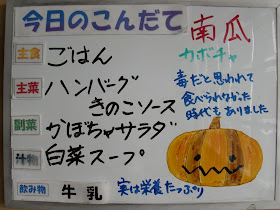 今日のこんだて
南瓜
カボチャ
主食 ごはん
主菜 ハンバーグ
きのこソース
副菜 かぼちゃサラダ
汁物 白菜スープ
飲み物 牛乳
毒だと思われて
食べられなかった
時代もありました
実は栄養たっぷり